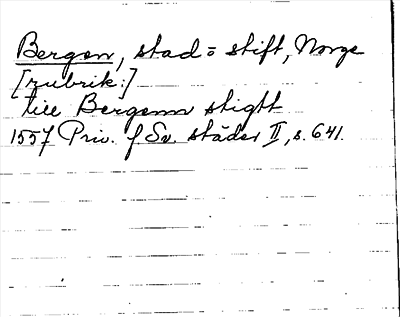 Bergen, stad o stift, Norge
[rubrik:]
till Bergenn stigtt
1557 Priv. f Sv. städer II, s. 641.